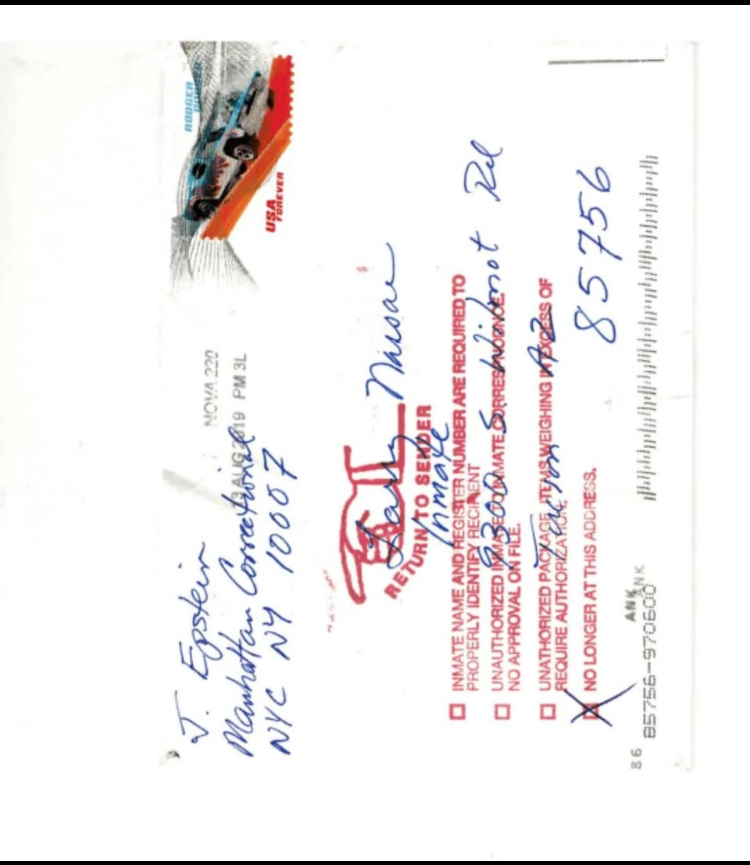 J. Epstein
Manhattan Correctional
NYC NY 10007
NOVA 220
13 AUG 2019 PM 3L
RODGER DODGER
USA
FOREVER
Larry Nassar
Inmate
9300 S. Wilmot Rd
Tucson AZ
85756
RETURN TO SENDER
INMATE NAME AND REGISTER NUMBER ARE REQUIRED TO
PROPERLY IDENTIFY RECIPIENT
UNAUTHORIZED INMATE TO INMATE CORRESPONDENCE.
NO APPROVAL ON FILE.
UNATHORIZED PACKAGE. ITEMS WEIGHING IN EXCESS OF
REQUIRE AUTHORIZATION.
X NO LONGER AT THIS ADDRESS.
ANK
ANK
86 85756-970600